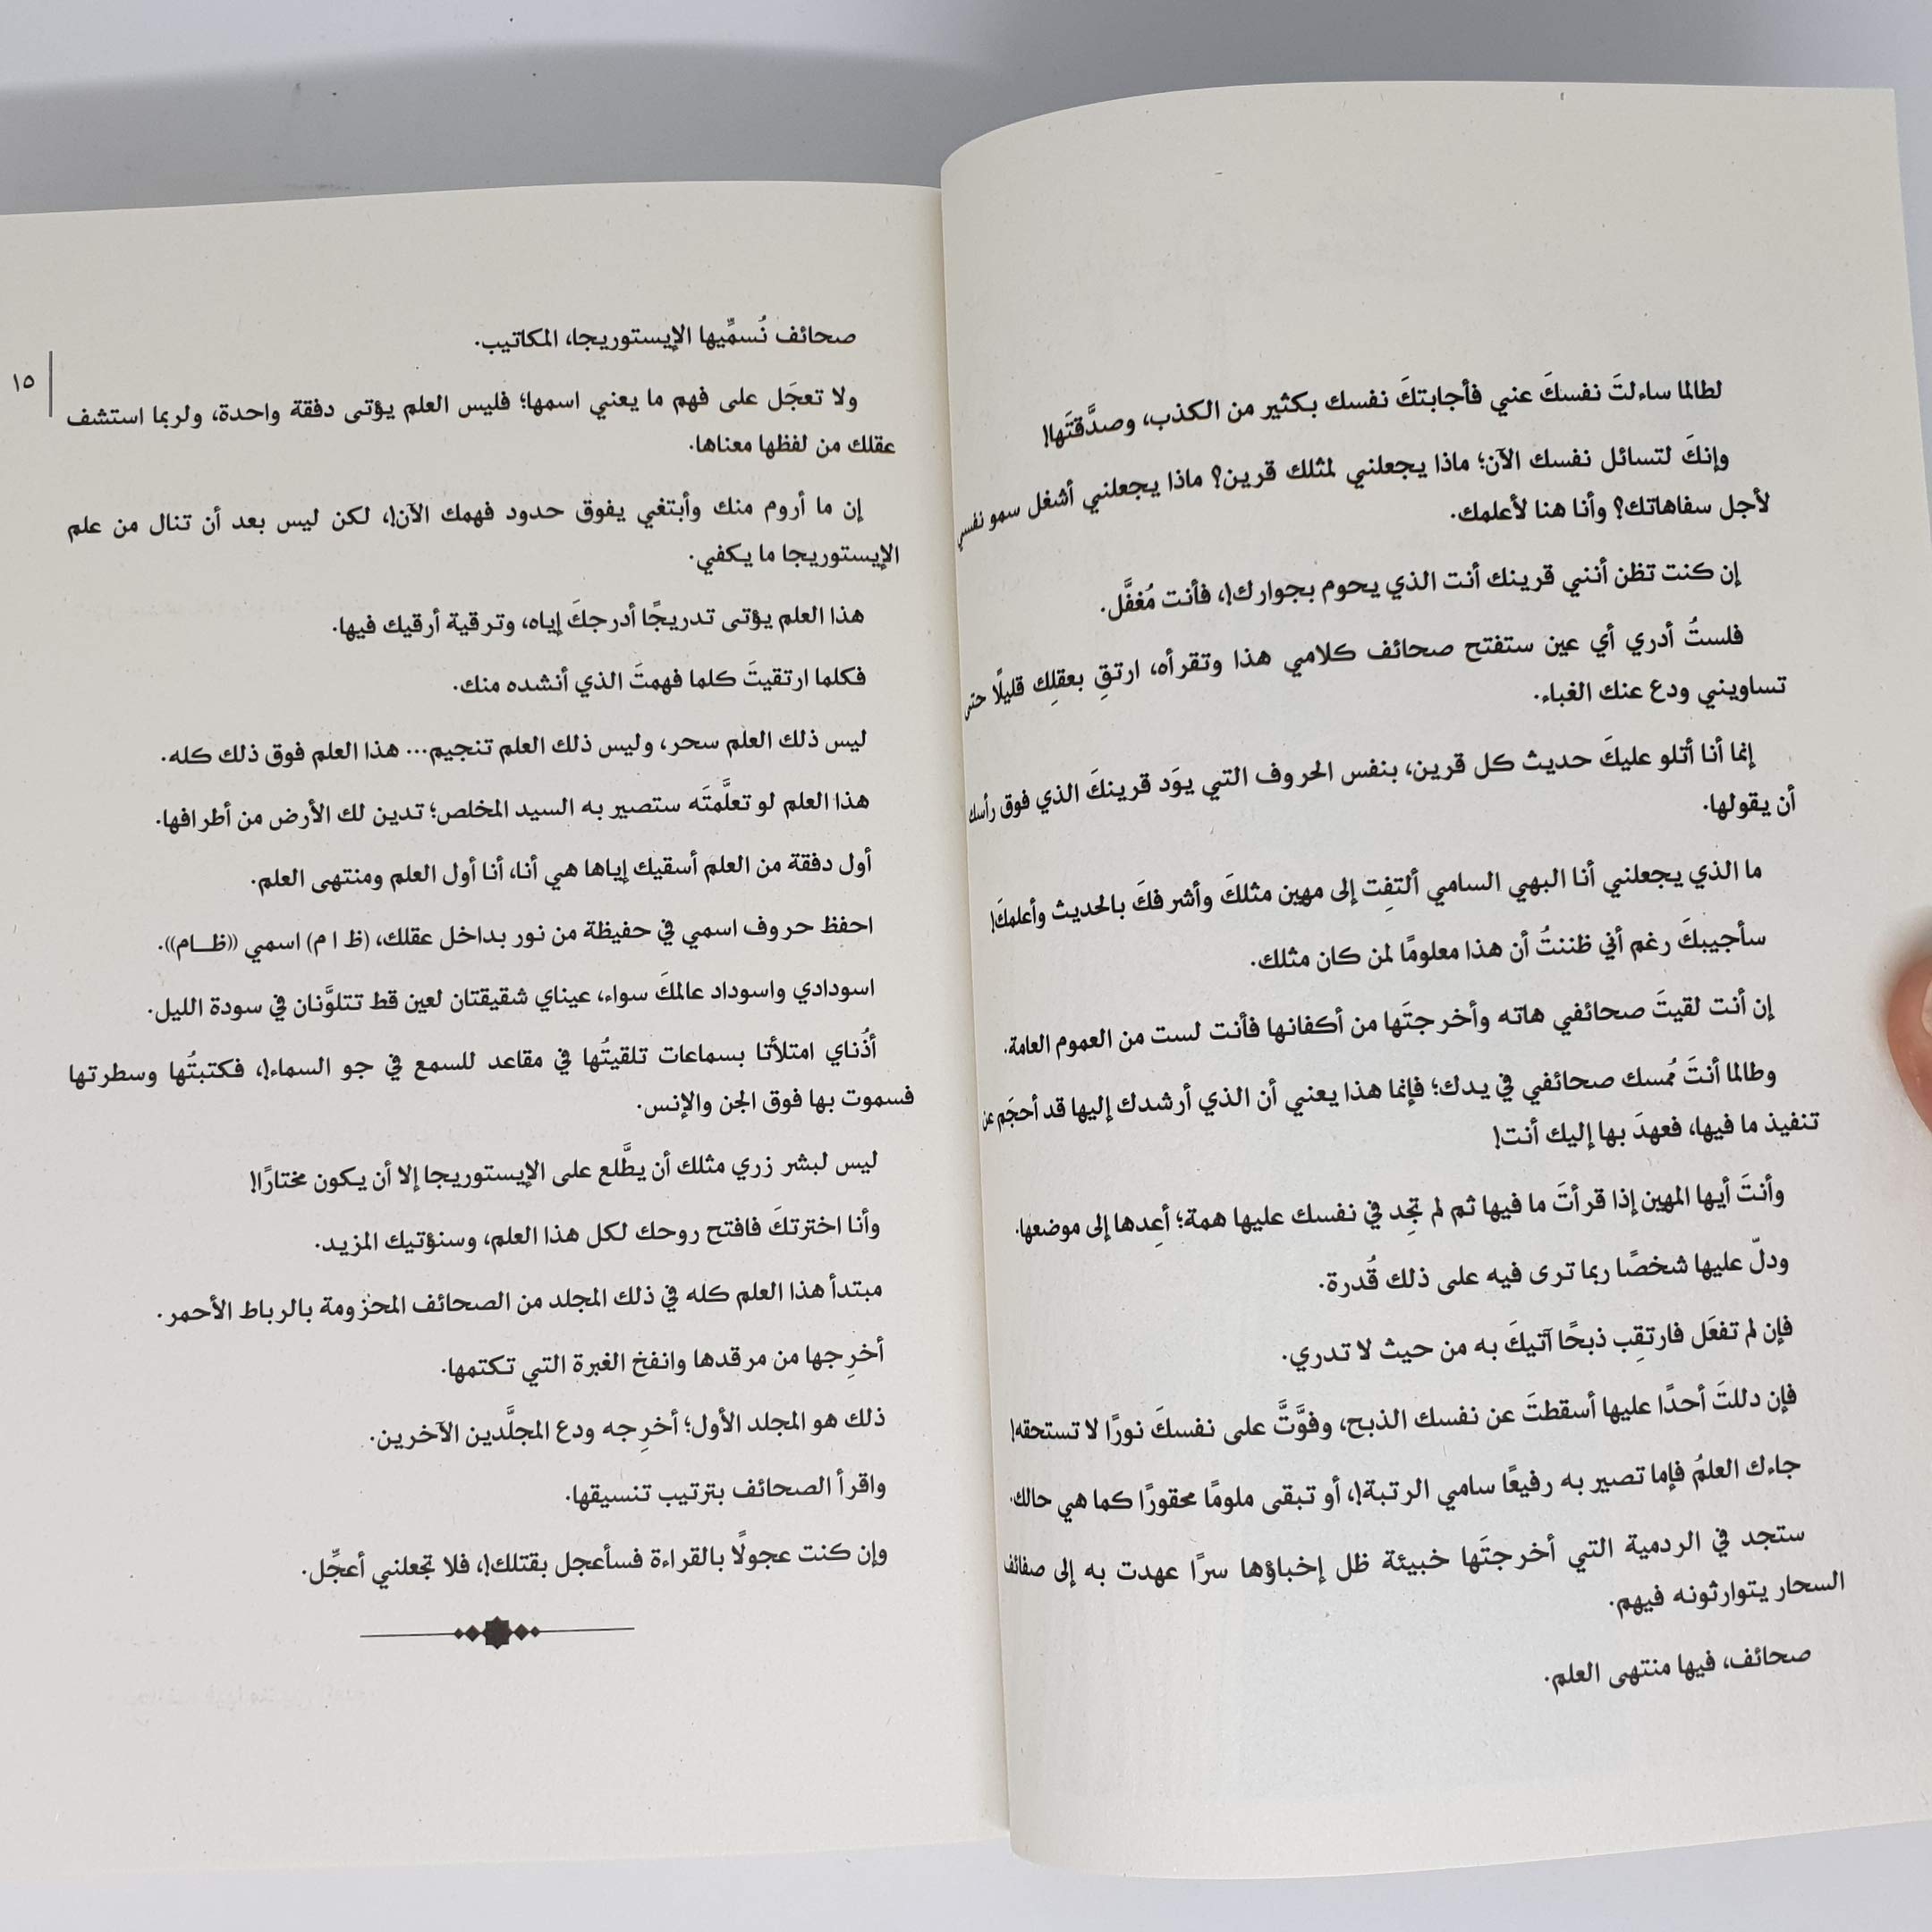 لطالما ساءلتَ نفسكَ عني فأجابتكَ نفسك بكثير من الكذب، وصدَّقتَها!
وإنكَ لتسائل نفسك الآن؛ ماذا يجعلني لمثلك قرين؟ ماذا يجعلني أشغل سمو نفسي
لأجل سفاهاتك؟ وأنا هنا لأعلمك.
إن كنت تظن أنني قرينك أنت الذي يحوم بجوارك!، فأنت مُغفَّل.
فلستُ أدري أي عين ستفتح صحائف كلامي هذا وتقرأه، ارتقِ بعقلِك قليلًا حتى
تساويني ودع عنك الغباء.
إنما أنا أتلو عليكَ حديث كل قرين، بنفس الحروف التي يوَد قرينكَ الذي فوق رأسك
أن يقولها.
ما الذي يجعلني أنا البهي السامي ألتفِت إلى مهين مثلكَ وأشرفكَ بالحديث وأعلمكَ!
سأجيبكَ رغم أني ظننتُ أن هذا معلومًا لمن كان مثلك.
إن أنت لقيتَ صحائفي هاته وأخرجتَها من أكفانها فأنت لست من العموم العامة.
وطالما أنتَ مُمسك صحائفي في يدك؛ فإنما هذا يعني أن الذي أرشدك إليها قد أحجَم عن
تنفيذ ما فيها، فعهدَ بها إليك أنت!
وأنتَ أيها المهين إذا قرأتَ ما فيها ثم لم تجِد في نفسك عليها همة؛ أعِدها إلى موضعها.
ودلّ عليها شخصًا ربما ترى فيه على ذلك قُدرة.
فإن لم تفعَل فارتقِب ذبحًا آتيكَ به من حيث لا تدري.
فإن دللتَ أحدًا عليها أسقطتَ عن نفسك الذبح، وفوَّتَّ على نفسكَ نورًا لا تستحقه!
جاءك العلمُ فإما تصير به رفيعًا سامي الرتبة!، أو تبقى ملومًا محقورًا كما هي حالك.
ستجد في الردمية التي أخرجتَها خبيئة ظل إخباؤها سرًا عهدت به إلى صفائف
السحار يتوارثونه فيهم.
صحائف، فيها منتهى العلم.
صحائف نُسمِّيها الإيستوريجا، المكاتيب.
١٥
ولا تعجَل على فهم ما يعني اسمها؛ فليس العلم يؤتى دفقة واحدة، ولربما استشف
عقلك من لفظها معناها.
إن ما أروم منك وأبتغي يفوق حدود فهمك الآن!، لكن ليس بعد أن تنال من علم
الإيستوريجا ما يكفي.
هذا العلم يؤتى تدريجًا أدرجكَ إياه، وترقية أرقيك فيها.
فكلما ارتقيتَ كلما فهمتَ الذي أنشده منك.
ليس ذلك العلم سحر، وليس ذلك العلم تنجيم... هذا العلم فوق ذلك كله.
هذا العلم لو تعلَّمتَه ستصير به السيد المخلص؛ تدين لك الأرض من أطرافها.
أول دفقة من العلم أسقيك إياها هي أنا، أنا أول العلم ومنتهى العلم.
احفظ حروف اسمي في حفيظة من نور بداخل عقلك، (ظ ا م) اسمي ((ظـــام)).
اسودادي واسوداد عالمكَ سواء، عيناي شقيقتان لعين قط تتلوَّنان في سودة الليل.
أذُناي امتلأتا بسماعات تلقيتُها في مقاعد للسمع في جو السماء!، فكتبتُها وسطرتها
فسموت بها فوق الجن والإنس.
ليس لبشر زري مثلك أن يطَّلع على الإيستوريجا إلا أن يكون مختارًا!
وأنا اخترتكَ فافتح روحك لكل هذا العلم، وسنؤتيك المزيد.
مبتدأ هذا العلم كله في ذلك المجلد من الصحائف المحزومة بالرباط الأحمر.
أخرِجها من مرقدها وانفخ الغبرة التي تكتمها.
ذلك هو المجلد الأول؛ أخرِجه ودع المجلَّدين الآخرين.
واقرأ الصحائف بترتيب تنسيقها.
وإن كنت عجولًا بالقراءة فسأعجل بقتلك!، فلا تجعلني أعجِّل.